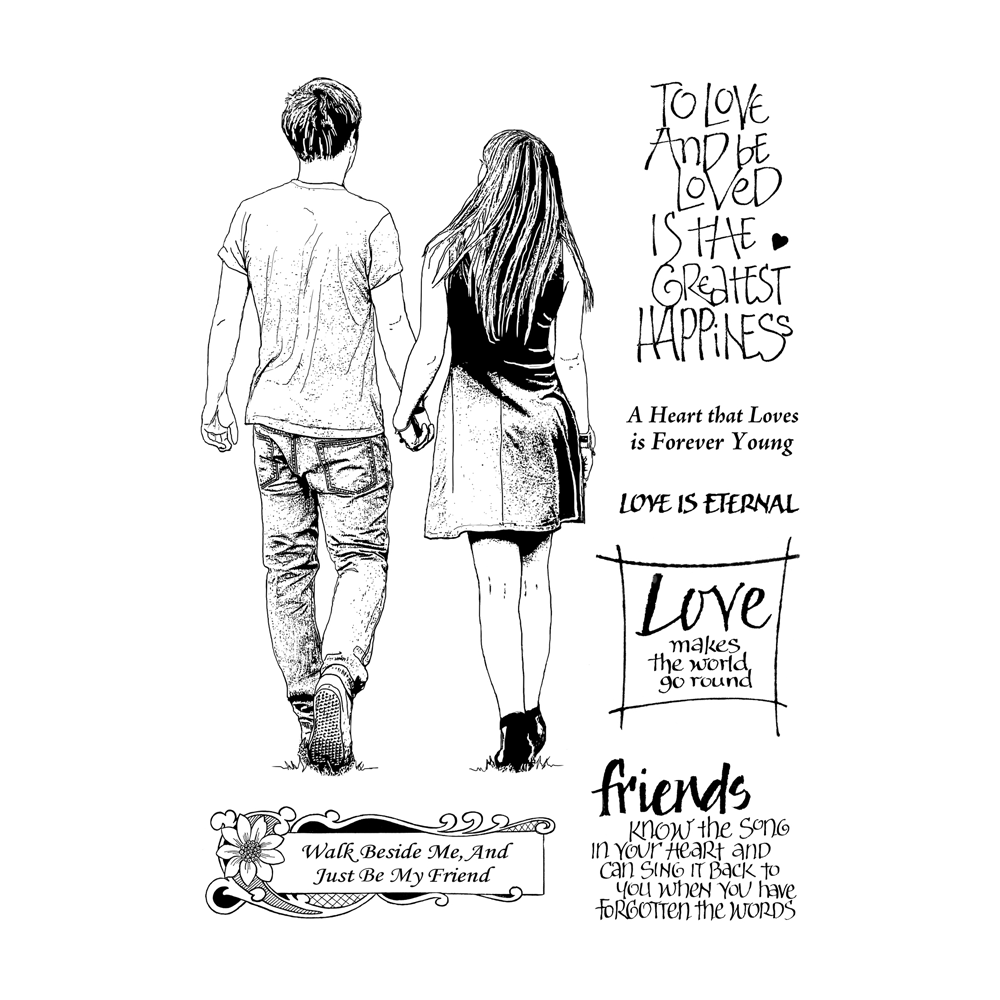 TO LOVE
AND BE
LOVED
IS THE
GREATEST
HAPPINESS
A Heart that Loves
is Forever Young
LOVE IS ETERNAL
Love
makes
the world
go round
friends
KNOW the SONG
IN YOUR HEART AND
CAN SING IT BACK to
YOU WHEN YOU HAVE
FORGOTTEN the WORDS
Walk Beside Me, And
Just Be My Friend